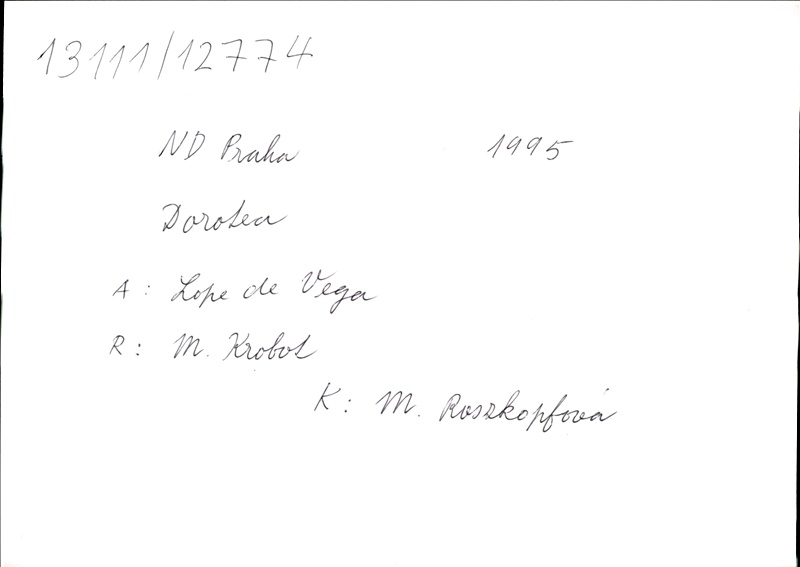 13111/12774
ND Praha 1995
Dorotea
A: Lope de Vega
R: M. Krobot
K: M. Roszkopfová